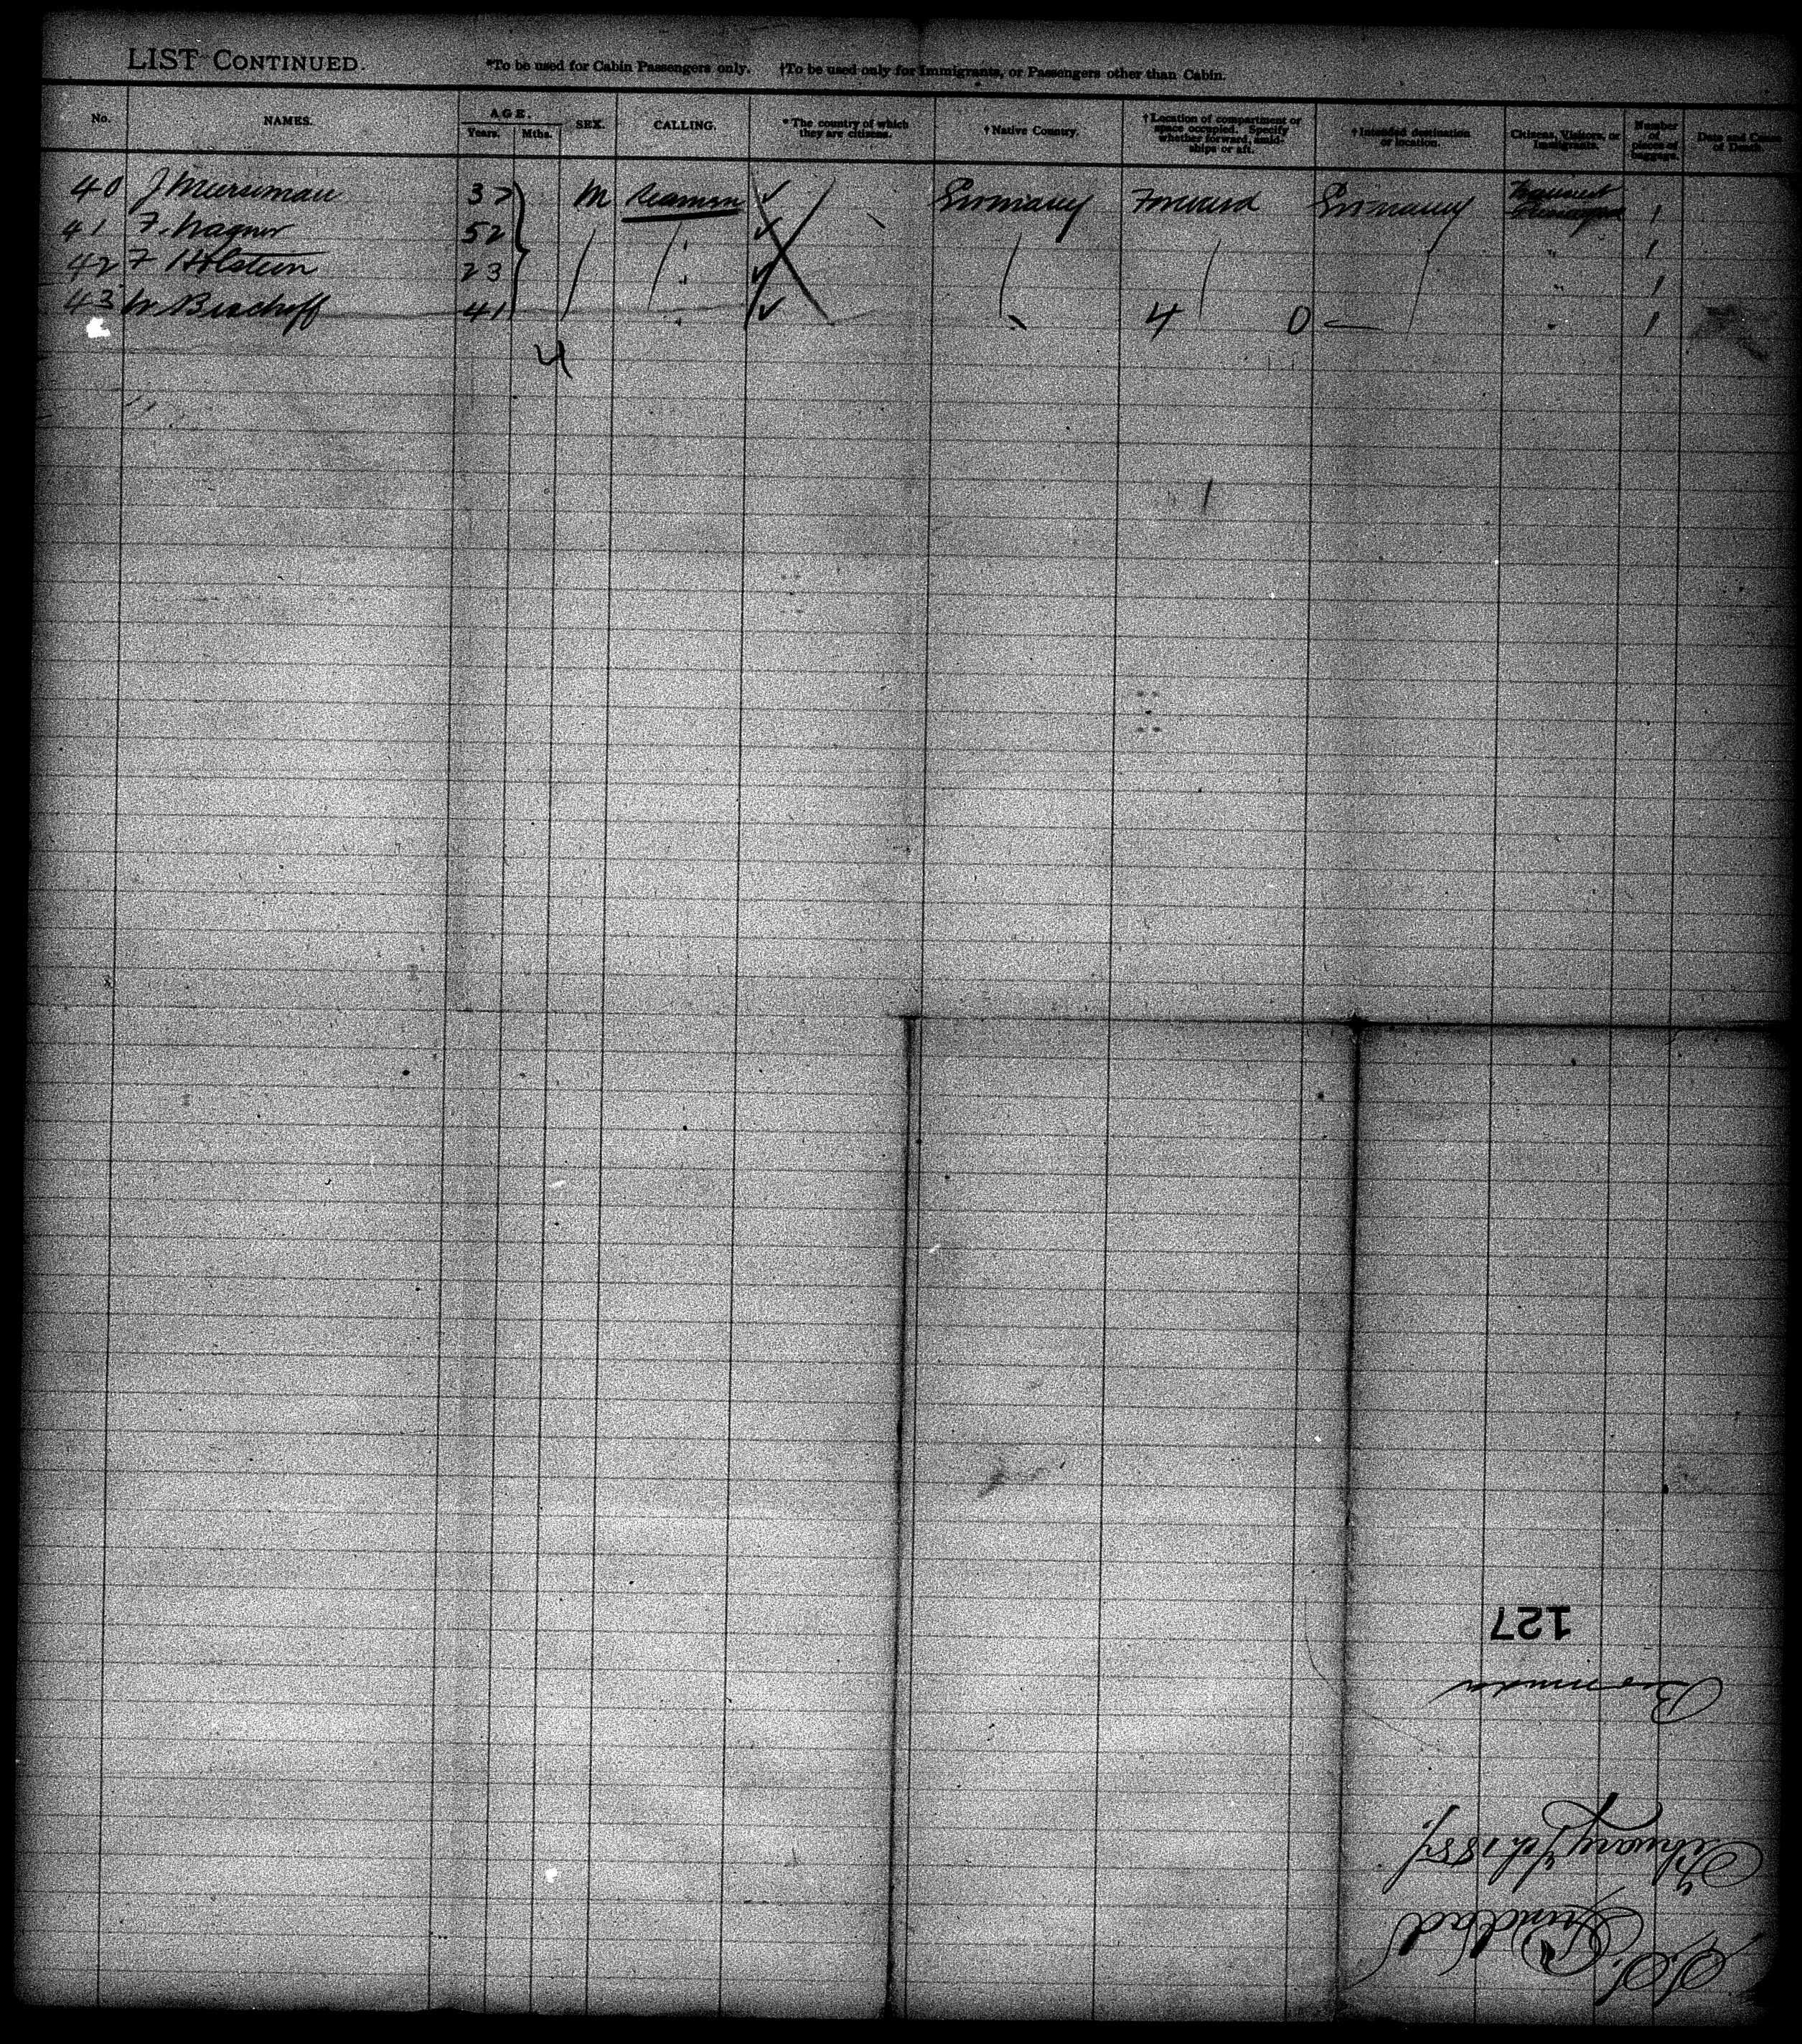 LIST CONTINUED. *To be used for Cabin Passengers only. †To be used only for Immigrants, or Passengers other than Cabin.
No. NAMES. AGE. Years. Mths. SEX. CALLING. * The country of which they are citizens. † Native Country. † Location of compartment or space occupied. Specify whether forward, amidships or aft. † Intended destination or location. Citizens, Visitors, or Immigrants. Number of pieces of baggage. Date and Cause of Death.
40 J 37 M Seaman ✓ Germany Forward Germany Transient 1
41 F. Wagner 52 " ✓ " 1
42 F Holstein 23 " ✓ " 1
43 W. Bischoff 41 " ✓ 4 0 " 1
4
127
Bermuda
February 7th 1889.
S.S. Trinidad